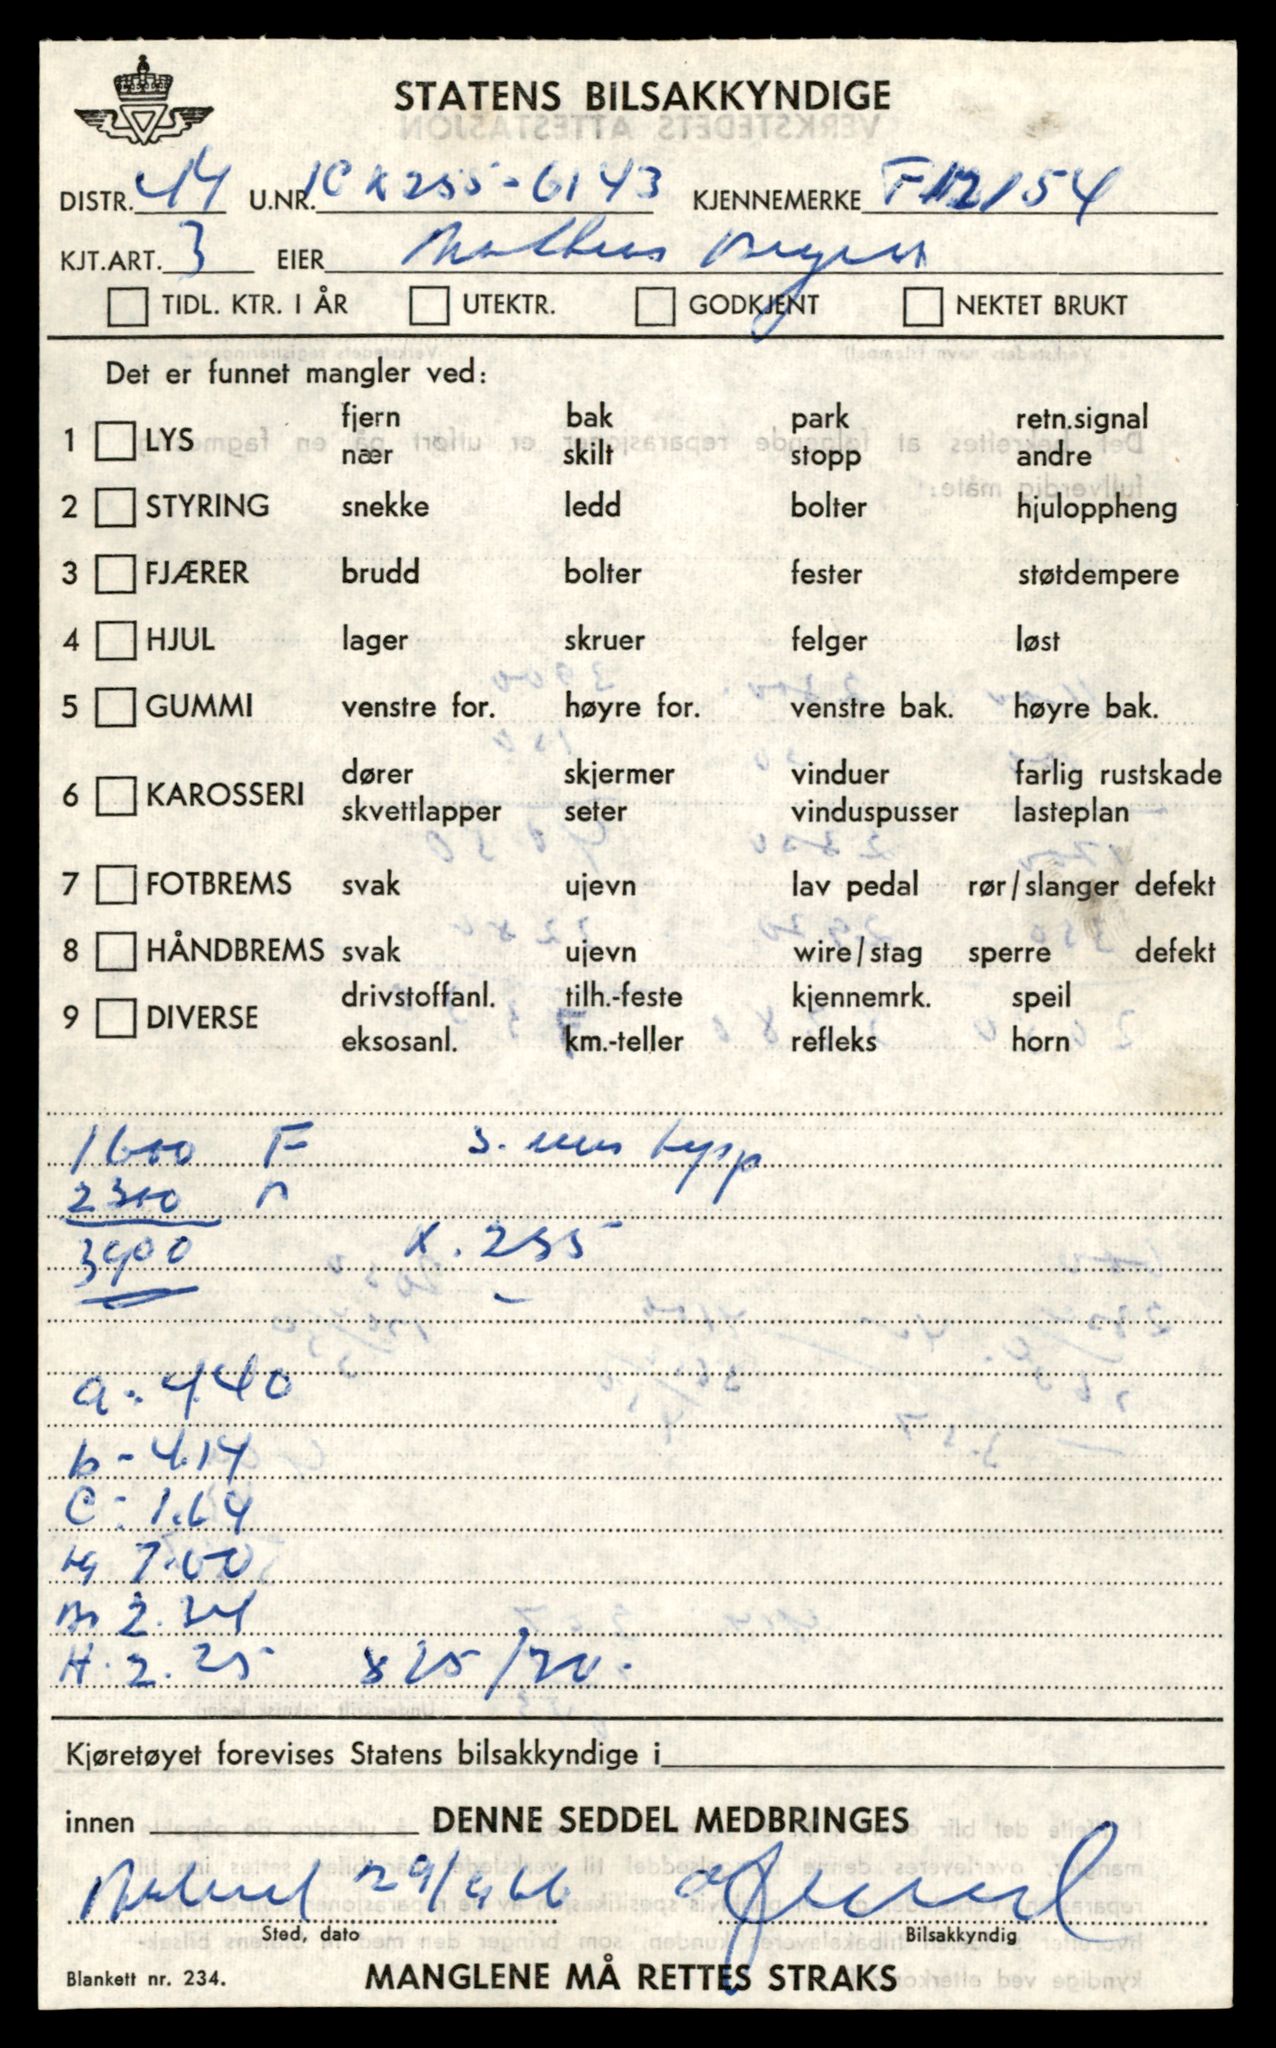 STATENS BILSAKKYNDIGE
DISTR. 44 U.NR. 1C K255-6143 KJENNEMERKE F-12154
KJT.ART. 3 EIER
TIDL. KTR. I ÅR UTEKTR. GODKJENT NEKTET BRUKT
Det er funnet mangler ved:
1 LYS fjern bak park retn.signal
nær skilt stopp andre
2 STYRING snekke ledd bolter hjuloppheng
3 FJÆRER brudd bolter fester støtdempere
4 HJUL lager skruer felger løst
5 GUMMI venstre for. høyre for. venstre bak. høyre bak.
6 KAROSSERI dører skjermer vinduer farlig rustskade
skvettlapper seter vinduspusser lasteplan
7 FOTBREMS svak ujevn lav pedal rør/slanger defekt
8 HÅNDBREMS svak ujevn wire/stag sperre defekt
9 DIVERSE drivstoffanl. tilh.-feste kjennemrk. speil
eksosanl. km.-teller refleks horn
1600 F
2300
3900 K. 255
a: 4.40
b - 4.14
C: 1.64
7.00
2.24
H. 2.25 825/20.
Kjøretøyet forevises Statens bilsakkyndige i
innen DENNE SEDDEL MEDBRINGES
29/9 66
Sted, dato Bilsakkyndig
Blankett nr. 234. MANGLENE MÅ RETTES STRAKS